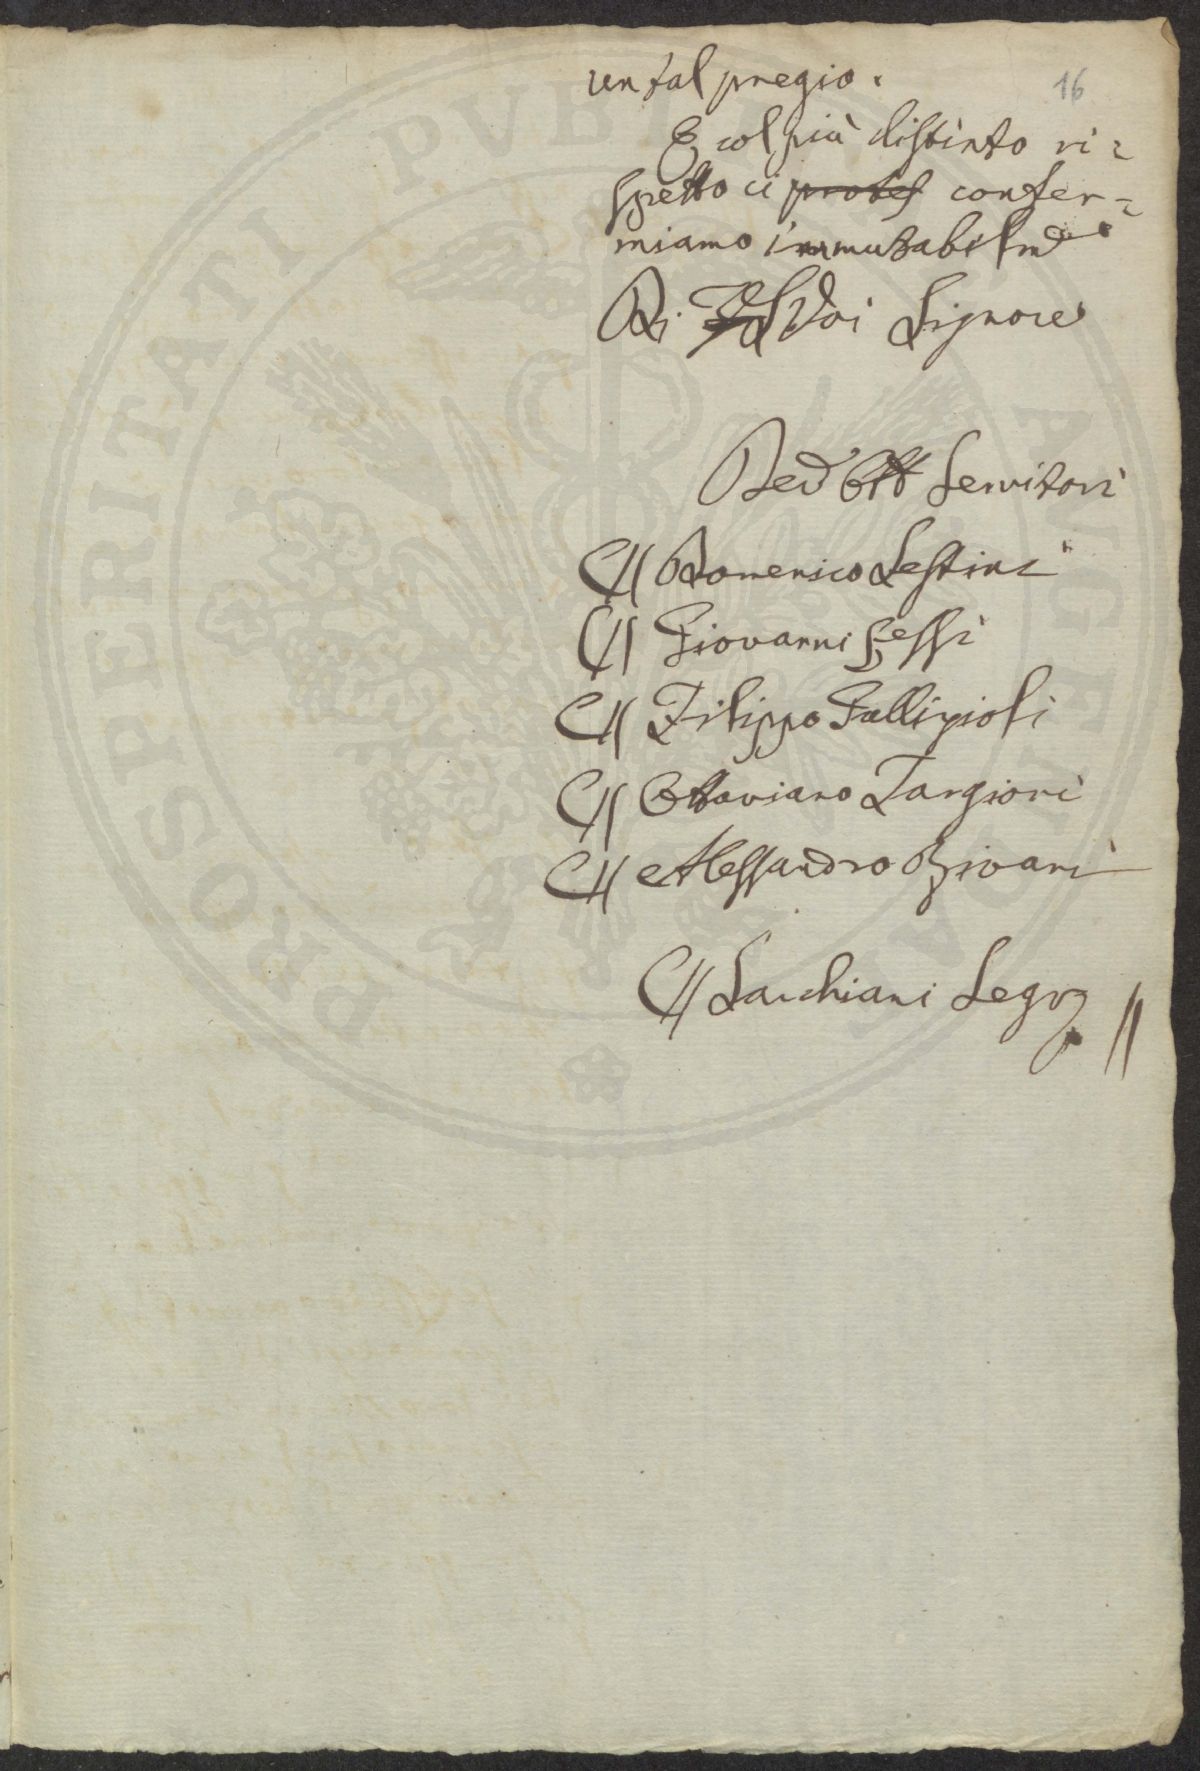 un tal pregio.
16
E col più distinto ri=
spetto ci protes confer=
miamo immutabilmᵉ
Di Voi Signore
Dev Obb Servitori
Domenico Sestini
Giovanni Fessi
Filippo Gallizioli
Ottaviano Targioni
Alessandro Rivani
Sarchiani Segr
PROSPERITATI PVBLICAE AVGENDAE